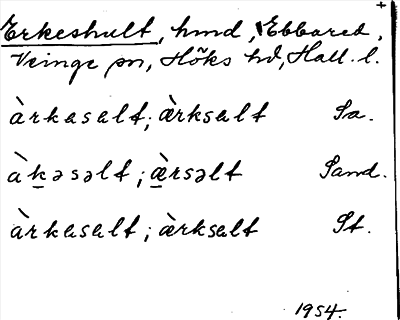 +
Erkeshult, hmd, Ebbared,
Veinge sn, Höks hd, Hall. l.
àrkəsəlt; æ̀rksəlt Sa.
àḵəsəlt; æ̱̀rsəlt Sand.
àrkəsəlt; æ̀rksəlt St.
1954.